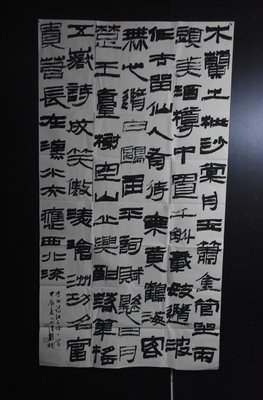 木蘭之枻沙棠舟玉簫金管坐兩
頭美酒樽中置千斛載妓隨波
任去留仙人有待乘黃鶴海客
無心隨白鷗屈平詞賦懸日月
楚王臺榭空山丘興酣落筆搖
五嶽詩成笑傲陵滄洲功名富
貴若長在漢水亦應西北流
李白詩江上吟一首
甲辰夏